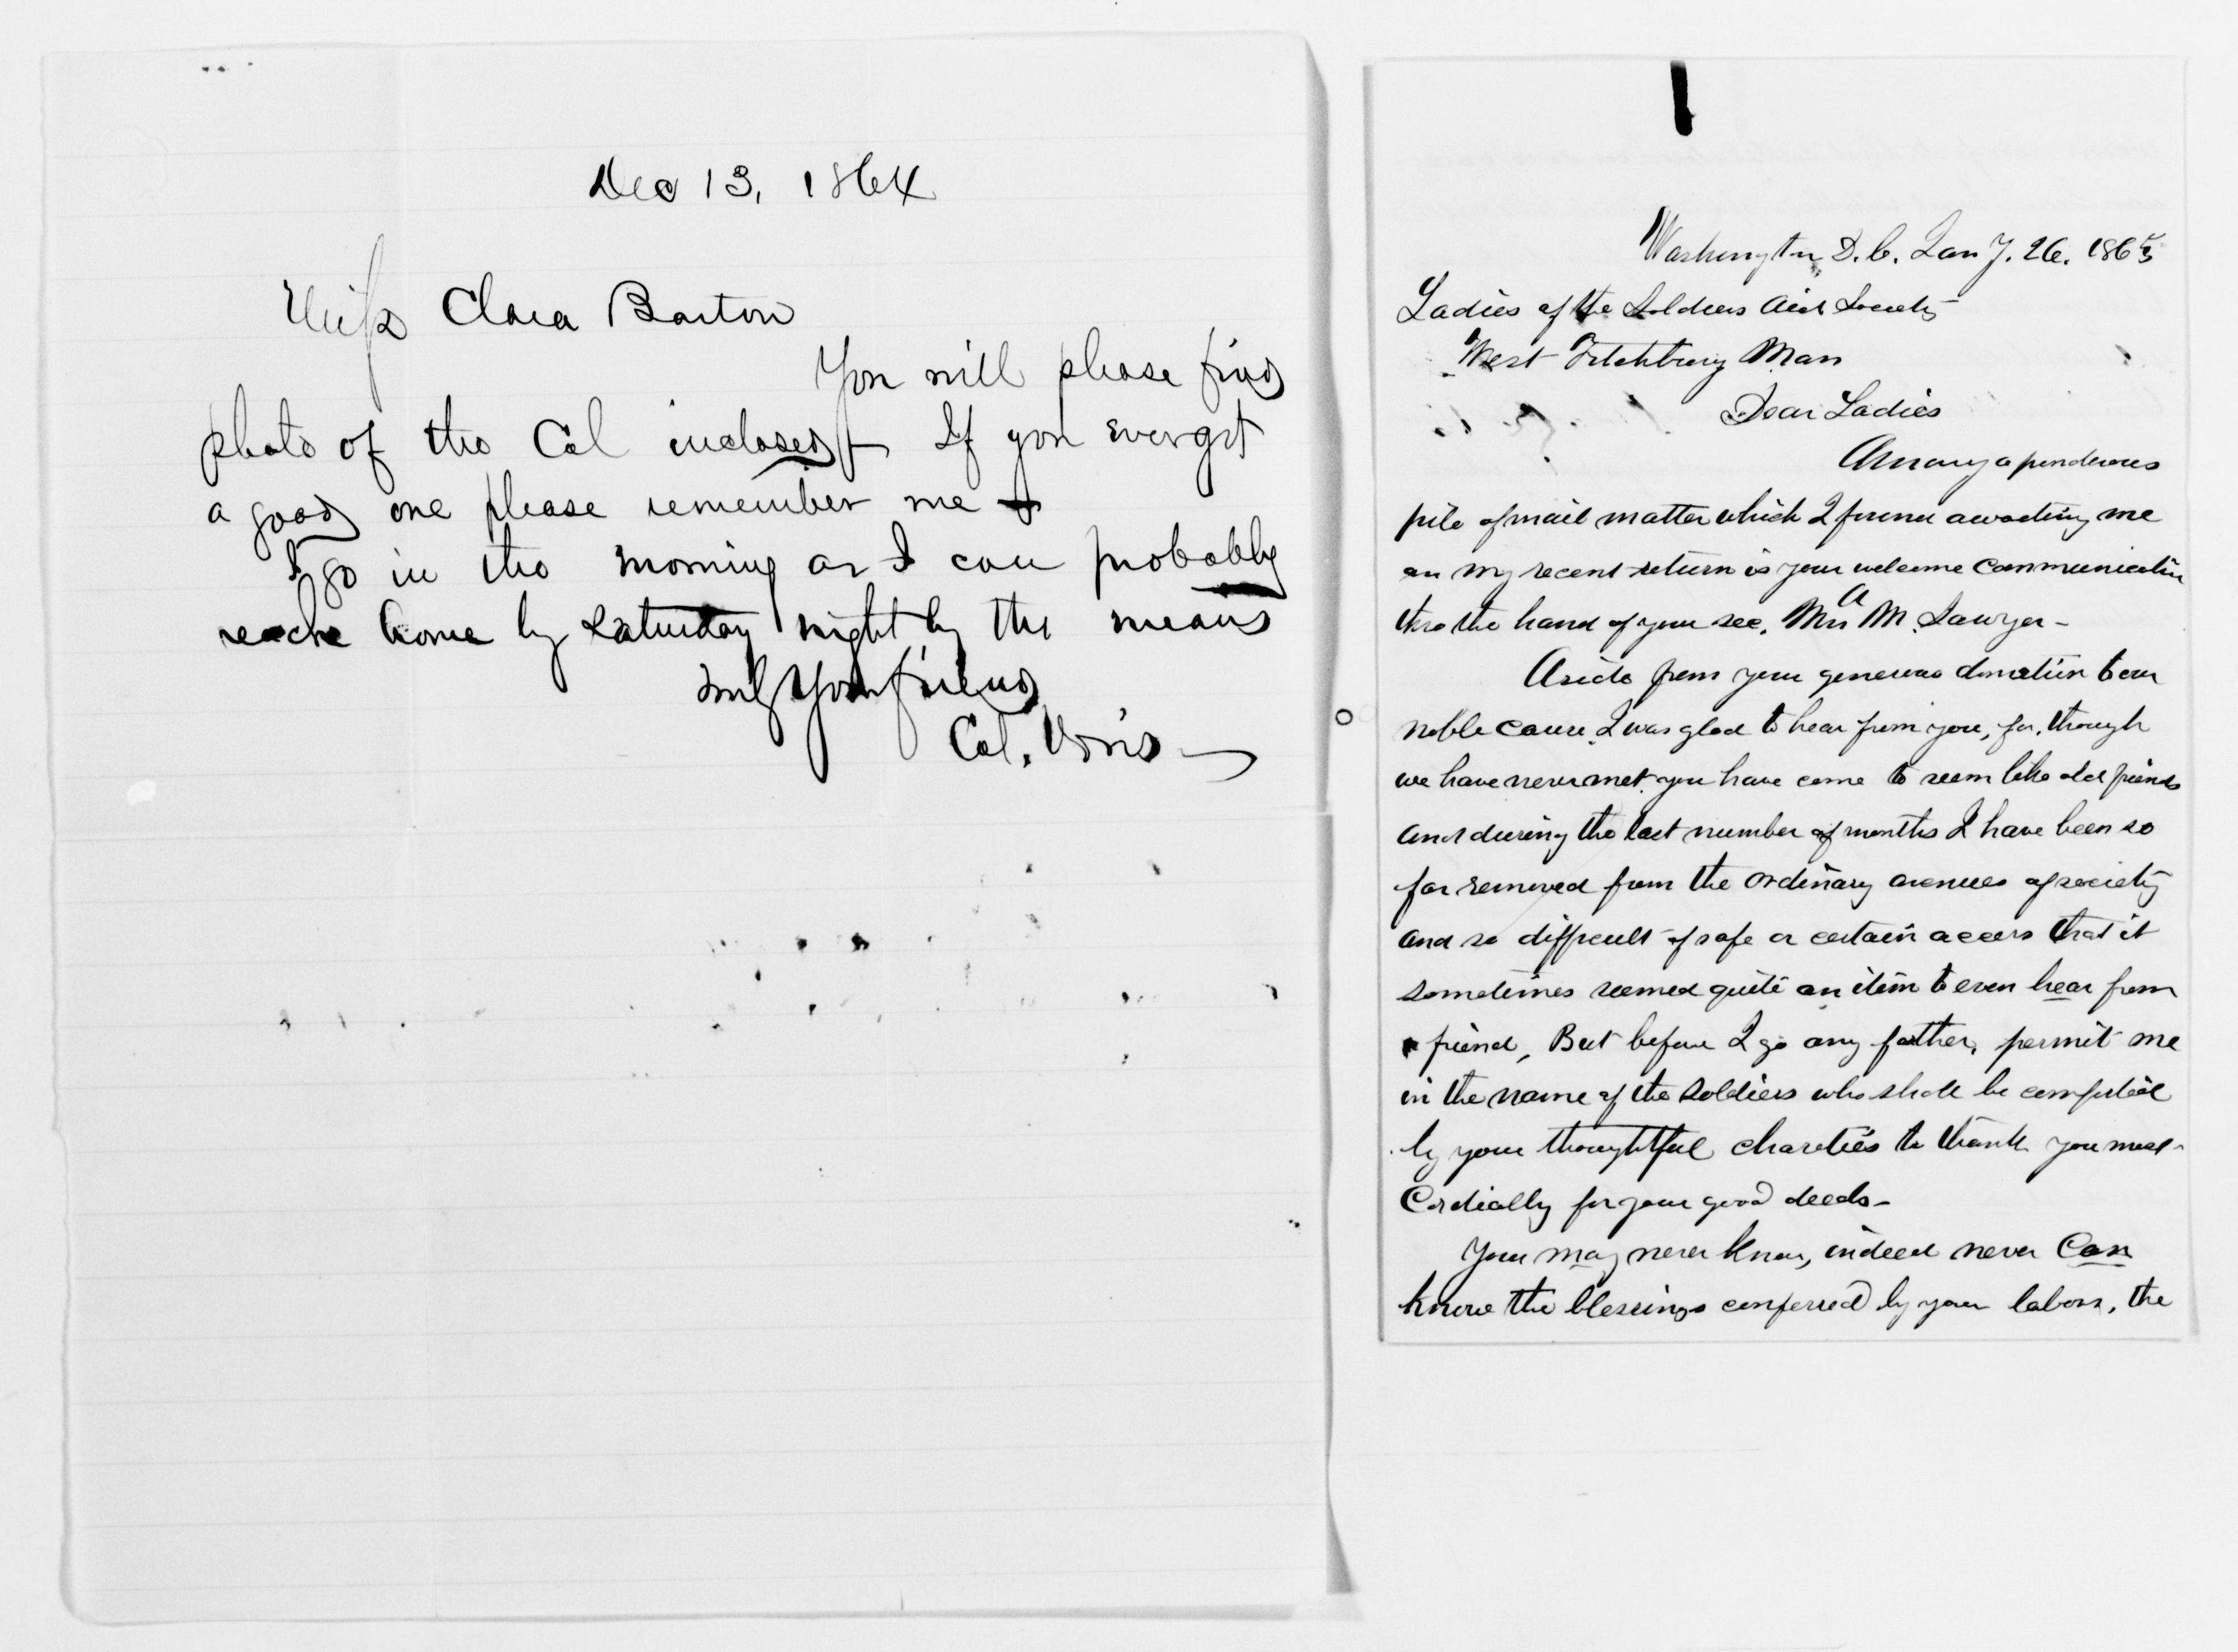 Dec 13, 1864
Miss Clara Barton
You will please find
photo of the Col inclosed If you ever get
a good one please remember me
I go in the morning as I can probably
reach home by Saturday night by this means
Your friend
Col. Voris
Washington D.C. Jany. 26. 1865
Ladies of the Soldiers Aid Society
West Fitchburg Mass
Dear Ladies
Among a ponderous
pile of mail matter which I found awaiting me
on my recent return is your welcome communication
thro the hand of your sec. Mrs A M. Sawyer -
Aside from your generous donation to our
noble cause, I was glad to hear from you, for, though
we have never met, you have come to seem like old friends
and during the last number of months I have been so
far removed from the ordinary avenues of society
and so difficult of safe or certain access that it
sometimes seemed quite an item to even hear from
a friend, But before I go any farther, permit me
in the name of the soldiers who shall be comforted
by your thoughtful charities to thank you most
Cordially for your good deeds -
You may never know, indeed never can
know the blessings conferred by your labors, the